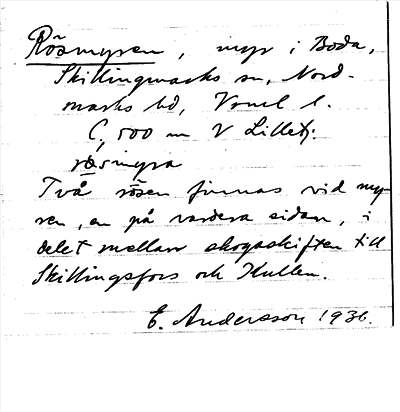 Rösmyren, myr i Boda,
Skillingmarks sn, Nord-
marks hd, Vrml l.
C, 500 m V Lilletj.
røsmyra
Två rösen finnas vid my-
ren, en på vardera sidan, i
delet mellan skogsskiften till
Skillingsfors och Hullen.
E. Andersson 1936.